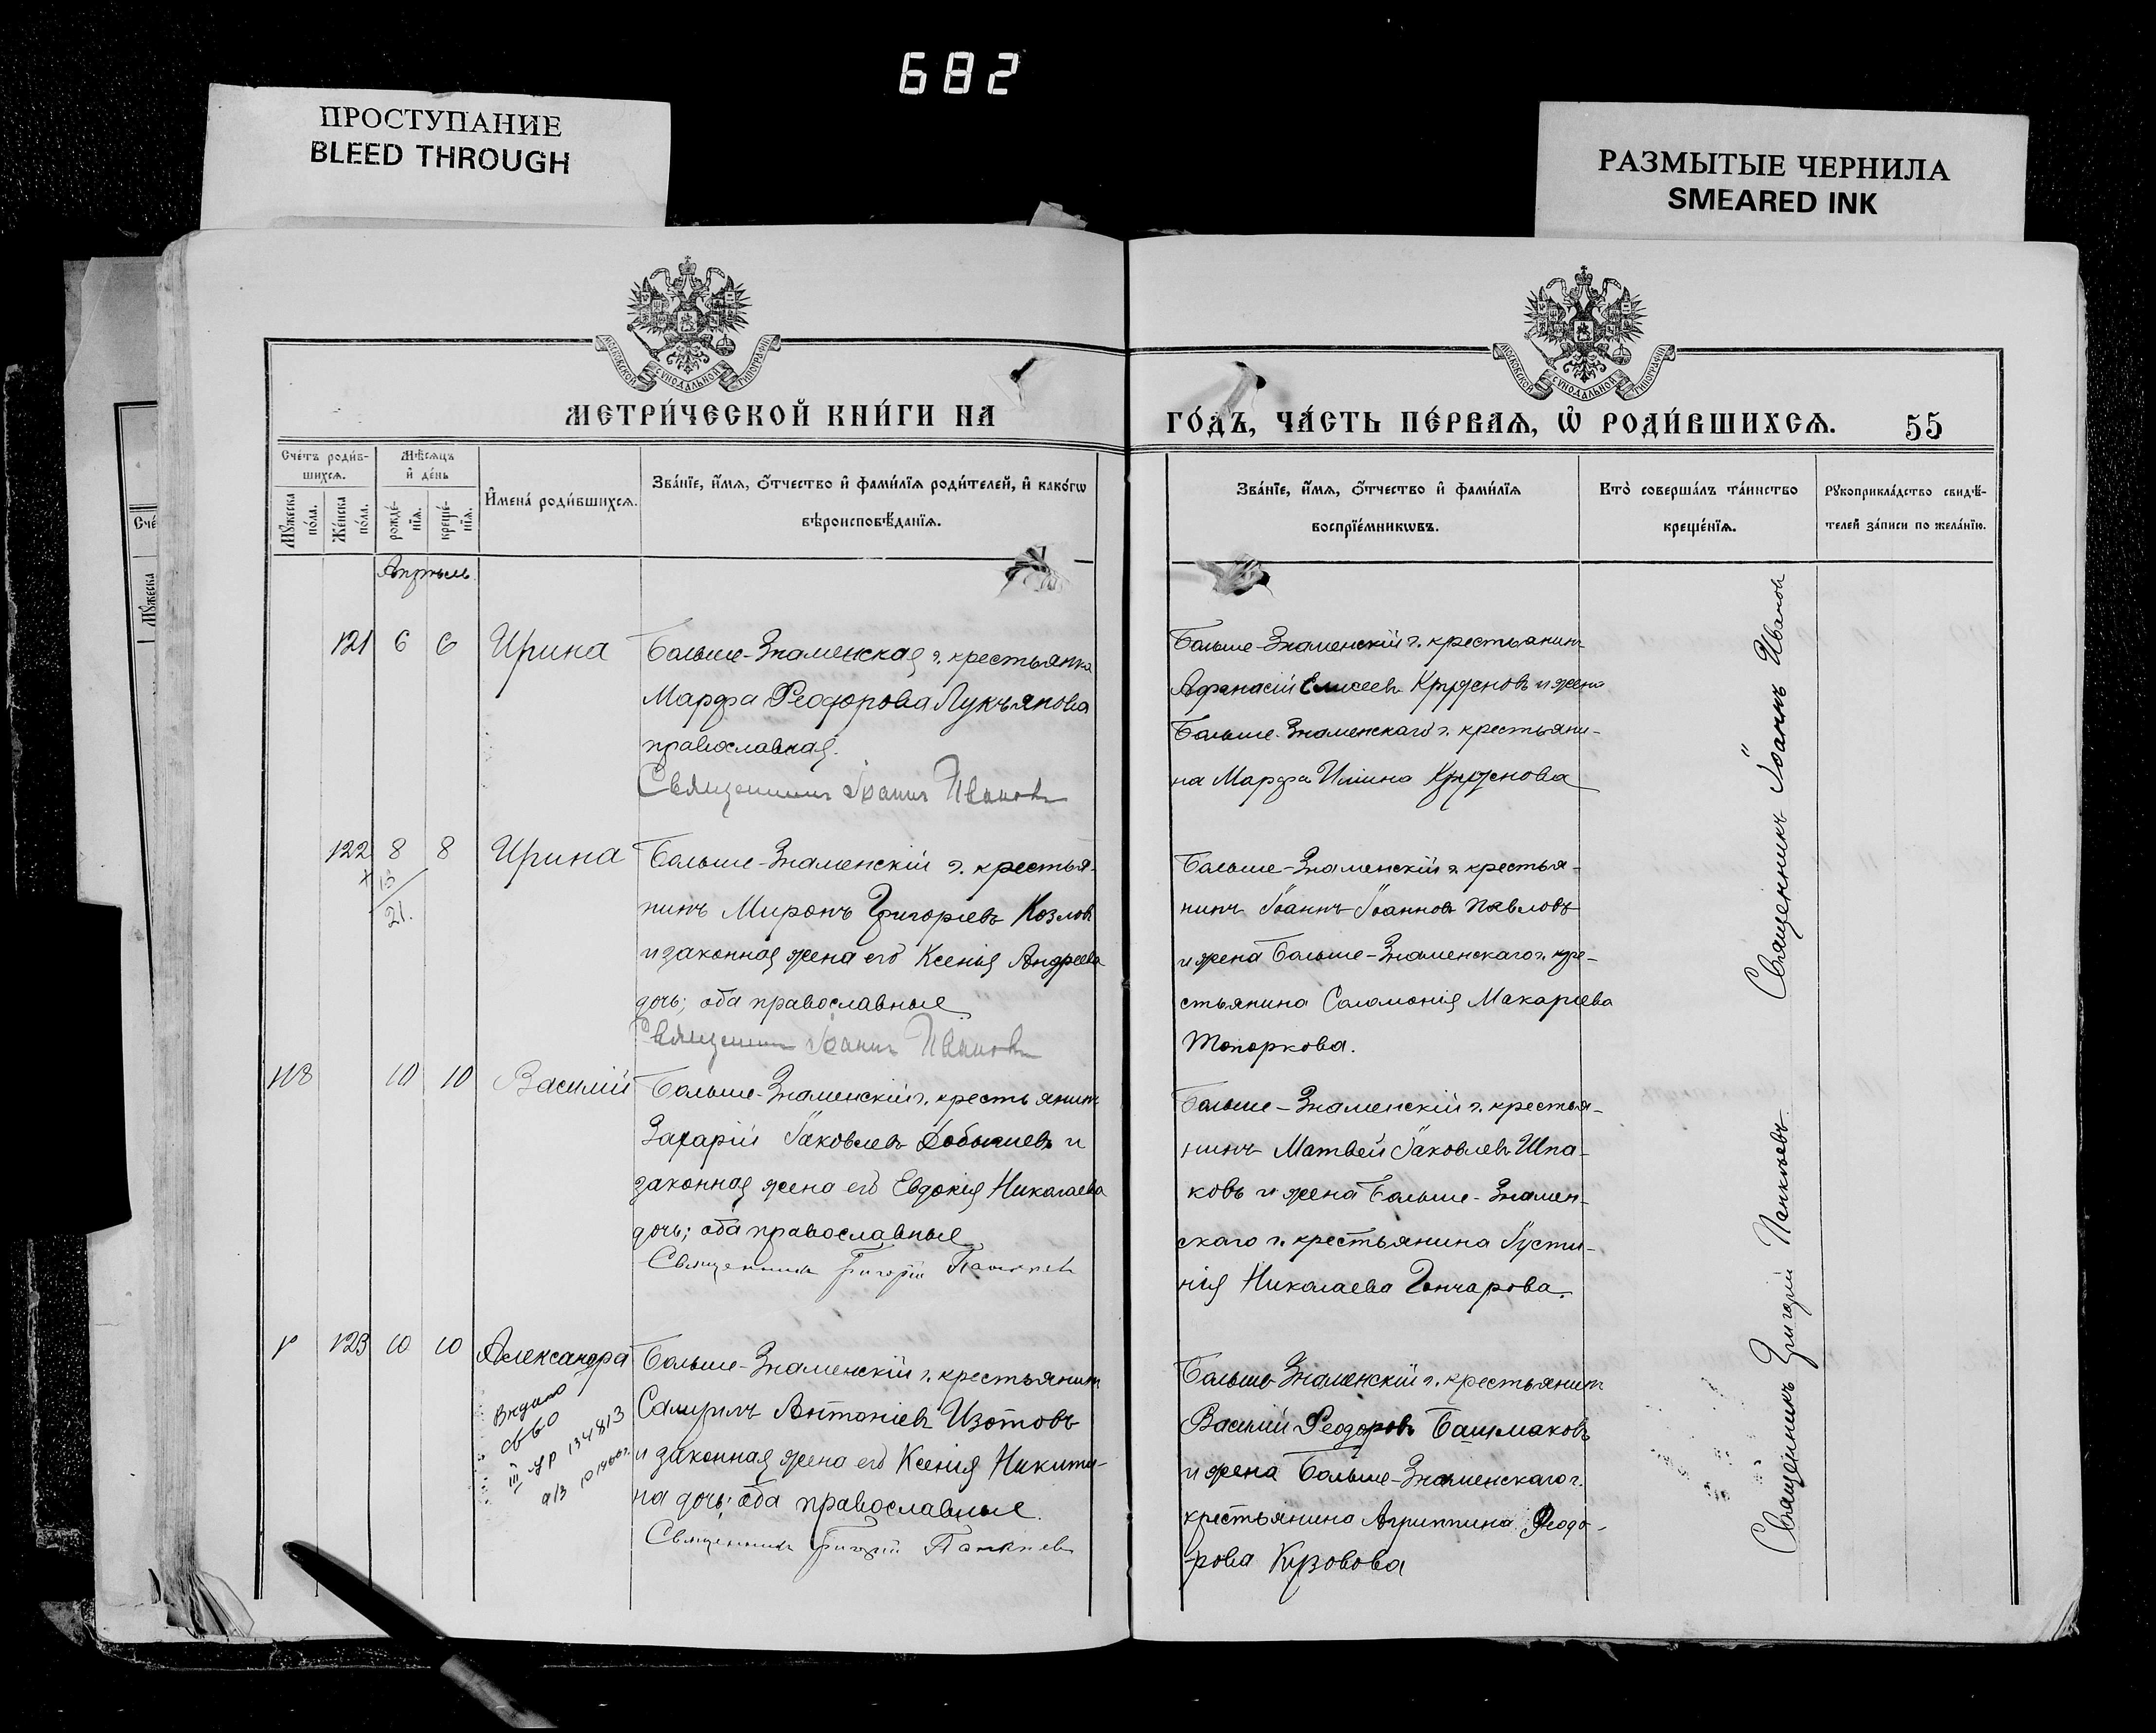 682
ПРОСТУПАНИЕ
BLEED THROUGH
РАЗМЫТЫЕ ЧЕРНИЛА
SMEARED INK
МОСКОВСКОЙ СУНОДАЛЬНОЙ ТИПОГРАФІИ
МОСКОВСКОЙ СУНОДАЛЬНОЙ ТИПОГРАФІИ
МЕТРИ́ЧЕСКОЙ КНИ́ГИ НА
ГО́ДЪ, ЧА́СТЬ ПЕ́РВАѦ, Ѡ҆ РОДИ́ВШИХСѦ.
55
Сче́тъ роди́в-
шихсѧ.
Мѣ́сѧцъ
и҆ де́нь
Мꙋ́жеска
по́ла.
Же́нска
по́ла.
рожде́-
нїѧ.
креще́-
нїѧ.
И҆мена̀ роди́вшихсѧ.
Зва́нїе, и҆́мѧ, ѻ҆́тчество и҆ фами́лїѧ роди́телей, и҆ како́гѡ
вѣроисповѣ́данїѧ.
Зва́нїе, и҆́мѧ, ѻ҆́тчество и҆ фами́лїѧ
воспрїе́мникѡвъ.
Кто̀ соверша́лъ та́инство
креще́нїѧ.
Рꙋкоприкла́дство свидѣ́-
телей за́писи по жела́нїю.
Сче́
Мꙋ́жеска
Апрѣль
121 6 6 Ирина
Больше-Знаменская г. крестьянка
Марфа Ѳеодорова Лукьянова
православная.
Священникъ Іоаннъ Ивановъ
Больше-Знаменскій г. крестьянинъ
Афанасій Елисеевъ и жена
Больше-Знаменскаго г. крестьяни-
на Марфа
122 8 8 Ирина
15
21.
Больше-Знаменскій г. крестья-
нинъ Миронъ Григоріевъ Козловъ
и законная жена его Ксенія Андреева
дочь; оба православные
Священникъ Іоаннъ Ивановъ
Больше-Знаменскій г. крестья-
нинъ Іоаннъ Іоанновъ Павловъ
и жена Больше-Знаменскаго г. кре-
стьянина Соломонія Макаріева
Топоркова.
118 10 10 Василій
Больше-Знаменскій г. крестьянинъ
Захарій Іаковлевъ и
законная жена его Евдокія Николаева
дочь; оба православные
Священникъ Григорій Панкѣевъ
Больше-Знаменскій г. крестья-
нинъ Матвей Іаковлевъ Шпа-
ковъ и жена Больше-Знамен-
скаго г. крестьянина Іусти-
нія Николаева Гончарова.
123 10 10 Александра
Видано
св-во
III УР 134813
Больше-Знаменскій г. крестьянинъ
Самуилъ Антоніевъ Изотовъ
и законная жена его Ксенія Никити-
на дочь; оба православные.
Священникъ Григорій Панкѣевъ
Больше-Знаменскій г. крестьянинъ
Василій Ѳеодоровъ Башмаковъ
и жена Больше-Знаменскаго г.
крестьянина Агриппина Ѳеодо-
рова Кузовова
Священникъ Іоаннъ Ивановъ
Священникъ Григорій Панкѣевъ